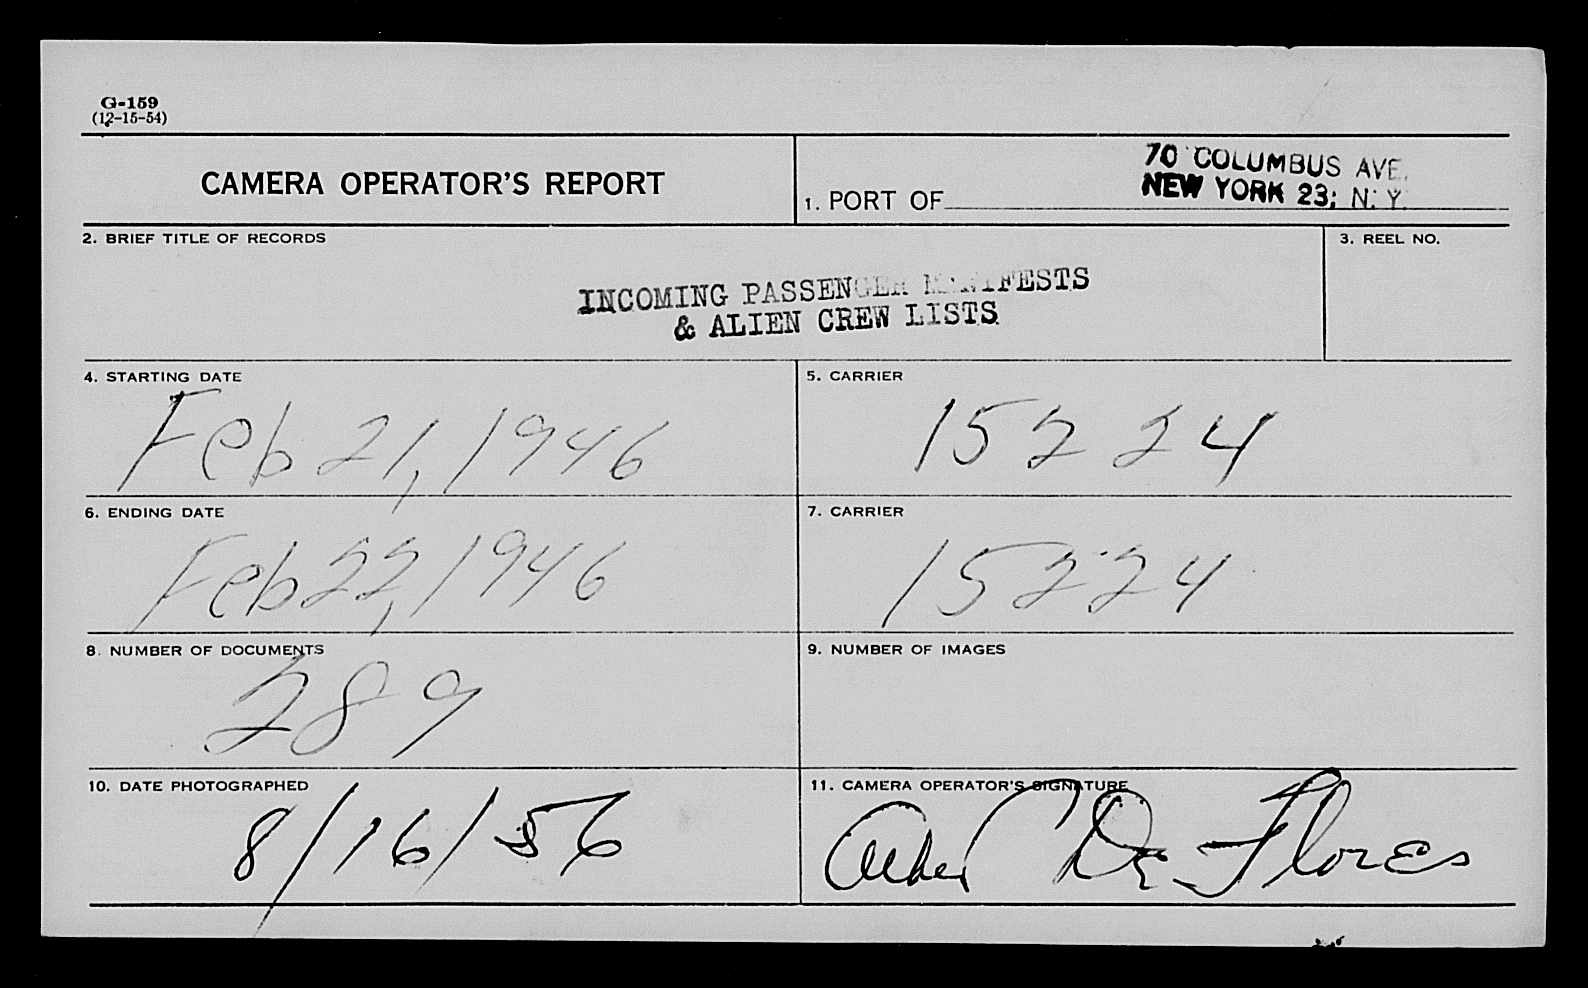 G-159
(12-15-54)
CAMERA OPERATOR'S REPORT
1. PORT OF
70 COLUMBUS AVE.
NEW YORK 23, N. Y.
2. BRIEF TITLE OF RECORDS
INCOMING PASSENGER MANIFESTS
& ALIEN CREW LISTS
3. REEL NO.
4. STARTING DATE
Feb 21, 1946
5. CARRIER
15224
6. ENDING DATE
Feb 22, 1946
7. CARRIER
15224
8. NUMBER OF DOCUMENTS
289
9. NUMBER OF IMAGES
10. DATE PHOTOGRAPHED
8/16/56
11. CAMERA OPERATOR'S SIGNATURE
De Flores